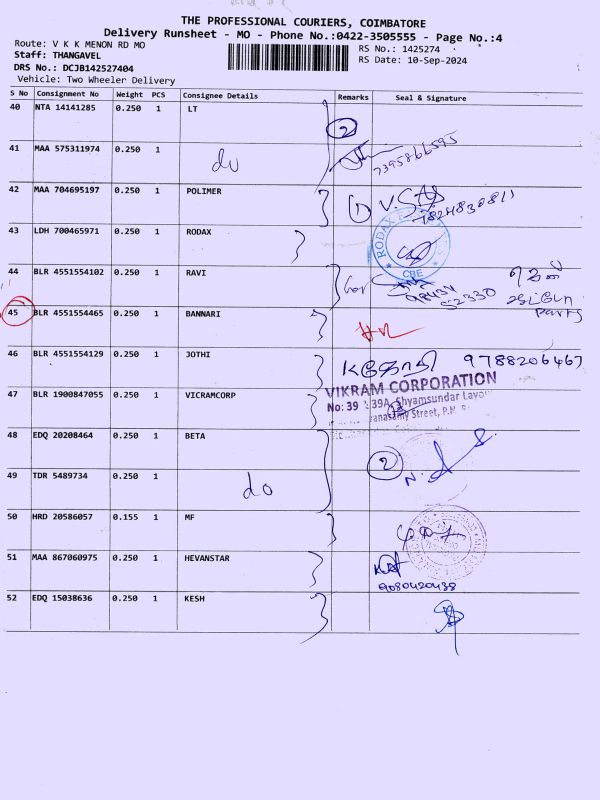 THE PROFESSIONAL COURIERS, COIMBATORE
Delivery Runsheet - MO - Phone No.:0422-3505555 - Page No.:4
Route: V K K MENON RD MO
RS No.: 1425274
Staff: THANGAVEL
RS Date: 10-Sep-2024
DRS No.: DCJB142527404
Vehicle: Two Wheeler Delivery
S No Consignment No Weight PCS Consignee Details Remarks Seal & Signature
40 NTA 14141285 0.250 1 LT
2
41 MAA 575311974 0.250 1
do
7395866595
42 MAA 704695197 0.250 1 POLIMER
1
7824830811
43 LDH 700465971 0.250 1 RODAX
RODAX
CBE
44 BLR 4551554102 0.250 1 RAVI
45 BLR 4551554465 0.250 1 BANNARI
46 BLR 4551554129 0.250 1 JOTHI
9788206467
47 BLR 1900847055 0.250 1 VICRAMCORP
VIKRAM CORPORATION
No: 39 & 39A, Shyamsundar
Street, P.N.
48 EDQ 20208464 0.250 1 BETA
2
49 TDR 5489734 0.250 1
do
50 HRD 20586057 0.155 1 MF
51 MAA 867060975 0.250 1 HEVANSTAR
9080420438
52 EDQ 15038636 0.250 1 KESH